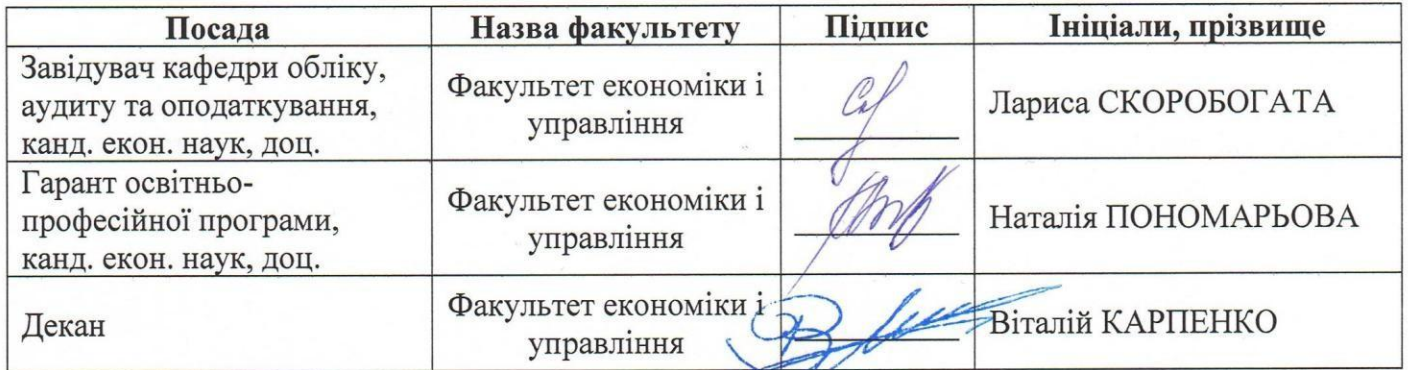 Посада Назва факультету Підпис Ініціали, прізвище
Завідувач кафедри обліку,
аудиту та оподаткування,
канд. екон. наук, доц.
Факультет економіки і
управління
Лариса СКОРОБОГАТА
Гарант освітньо-
професійної програми,
канд. екон. наук, доц.
Факультет економіки і
управління
Наталія ПОНОМАРЬОВА
Декан
Факультет економіки і
управління
Віталій КАРПЕНКО